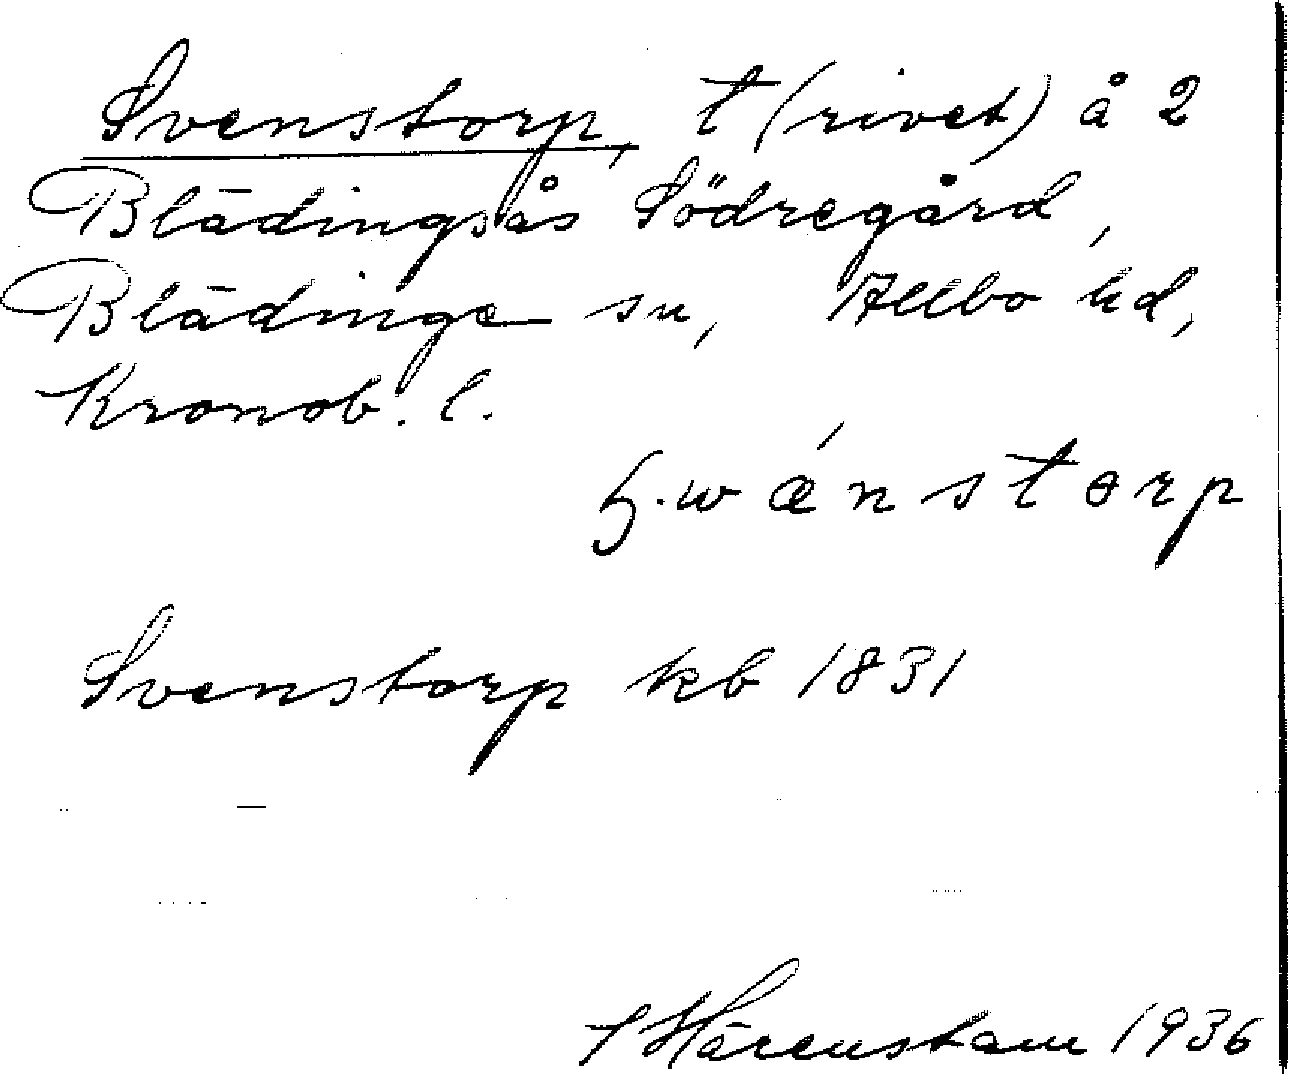 Svenstorp, t (rivet) å 2
Blädingsås Södregård,
Blädinge sn, Allbo hd,
Kronob. l.
wǽnstorp
Svenstorp kb 1831
Härenstam 1936